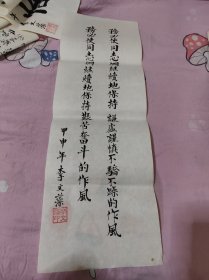 務必使同志们继續地保持謙虚謹慎不驕不躁的作風
務必使同志们继續地保持艱苦奮斗的作風
甲申年李文